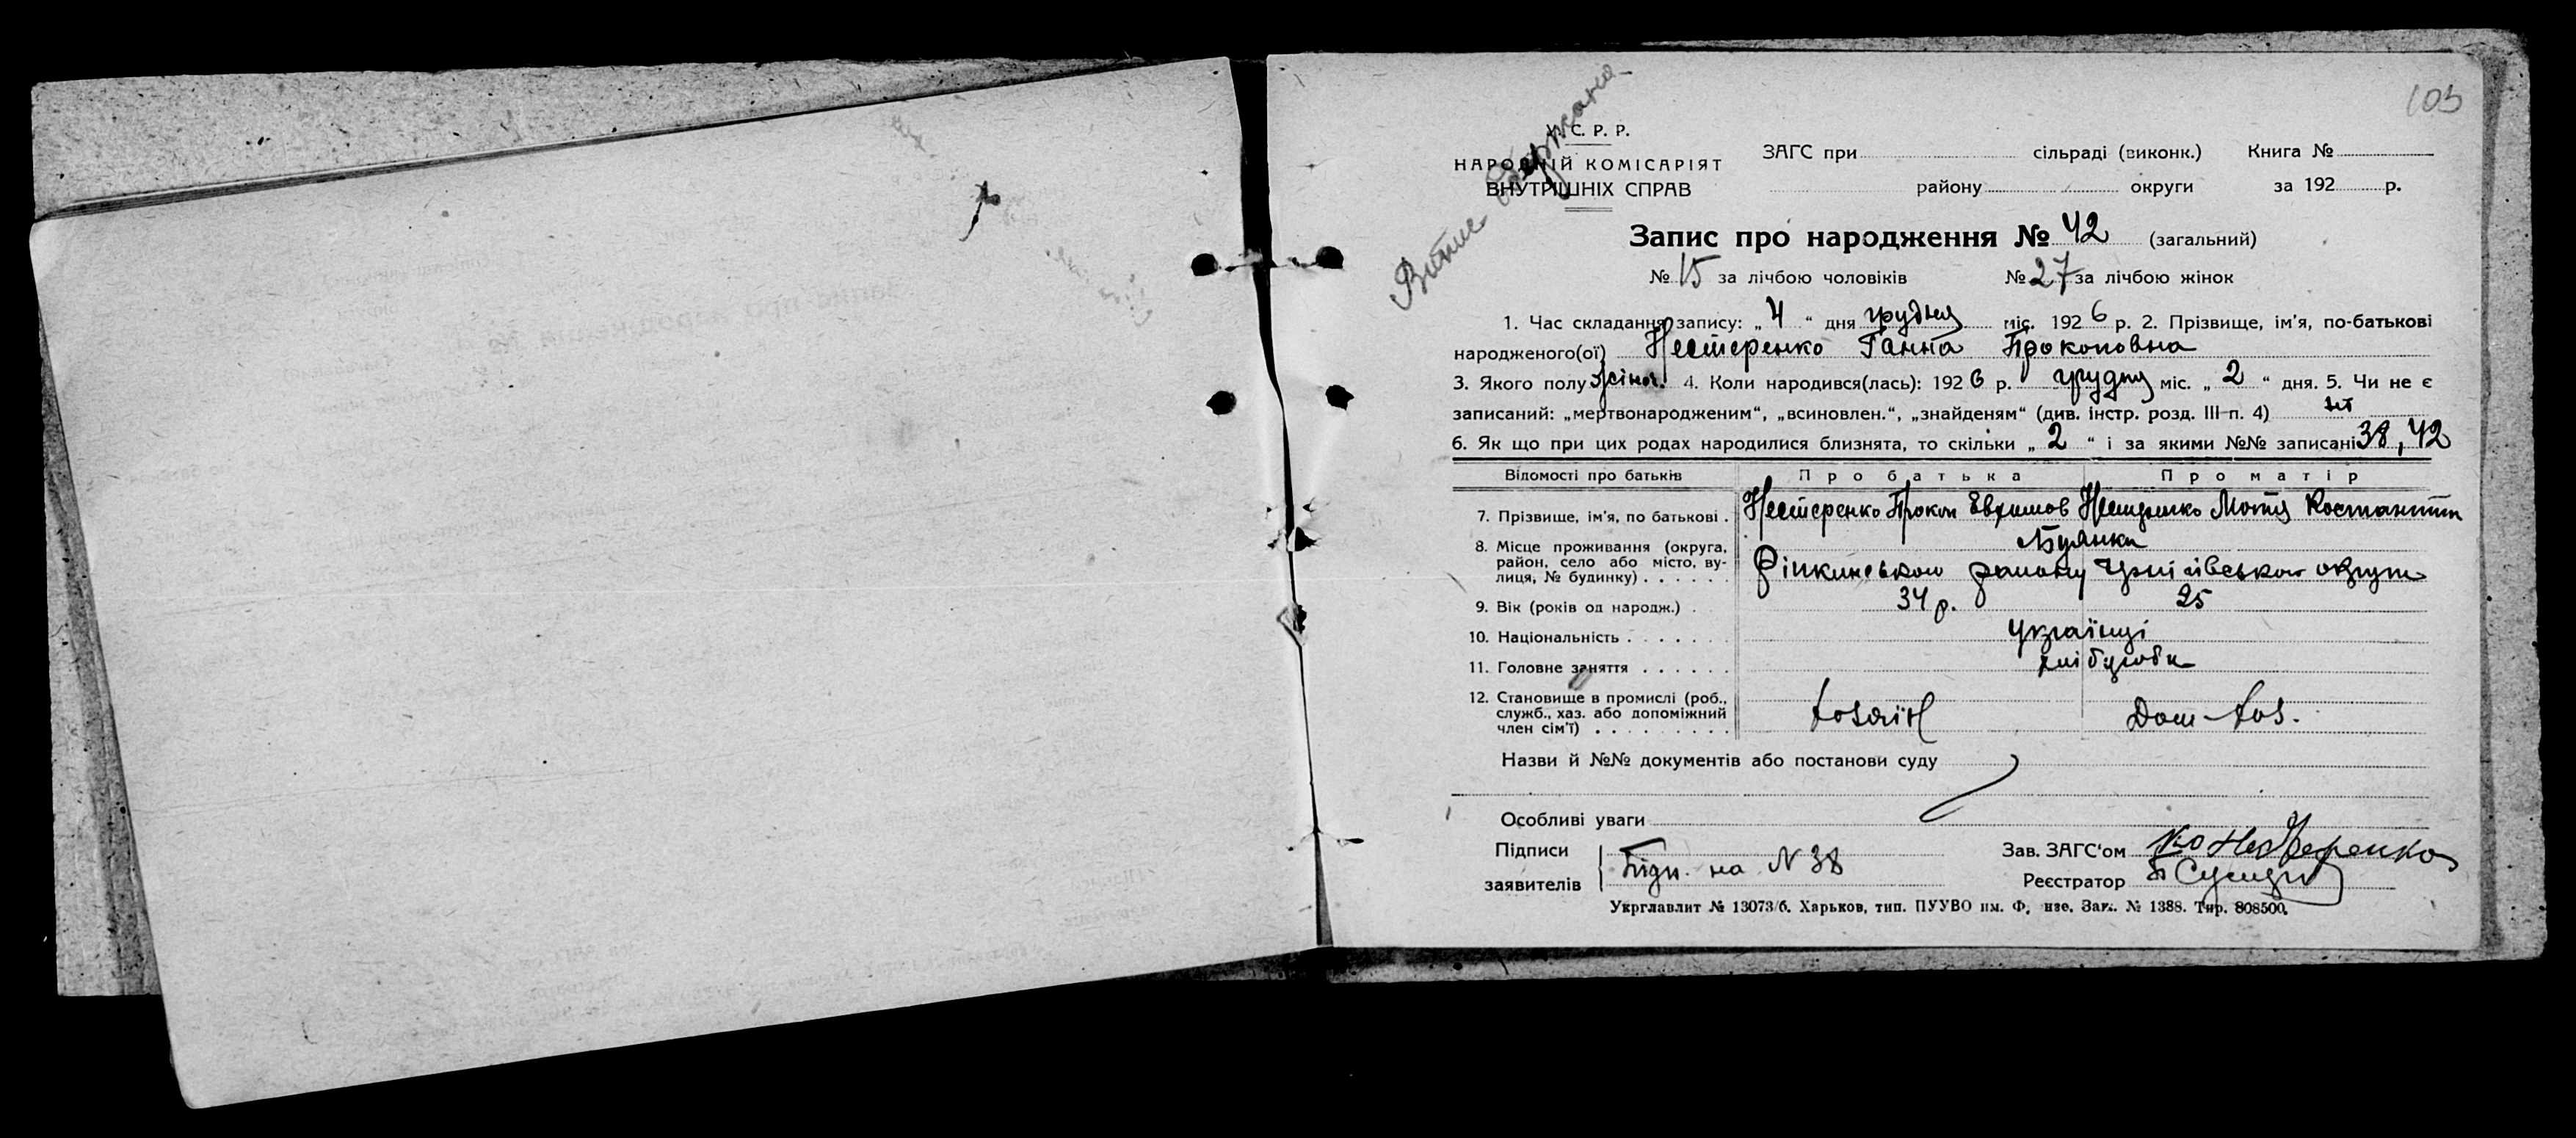 103
Витис держана
У. С. Р. Р.
НАРОДНІЙ КОМІСАРІЯТ
ВНУТРІШНІХ СПРАВ
ЗАГС при сільраді (виконк.) Книга №
району округи за 192 р.
Запис про народження № 42 (загальний)
№ 15 за лічбою чоловіків № 27 за лічбою жінок
1. Час складання запису: „ 4 “ дня грудня міс. 192 6 р. 2. Прізвище, ім'я, по-батькові
народженого(ої) Нестеренко Ганна Прокоповна
3. Якого полу жіноч. 4. Коли народився(лась): 192 6 р. грудня міс. „ 2 “ дня. 5. Чи не є
записаний: „мертвонародженим“, „всиновлен.“, „знайденям“ (див. інстр. розд. III п. 4) ні
6. Як що при цих родах народилися близнята, то скільки „ 2 “ і за якими №№ записані 38, 42
Відомості про батьків Про батька Про матір
7. Прізвище, ім'я, по батькові . Нестеренко Прокоп Евхимов Мотя Костантин
8. Місце проживання (округа, район, село або місто, вулиця, № будинку) . . . . . . Буянки
Ріпкинського району Чернігівської округи
9. Вік (років од народж.) . 34 р. 25
10. Національність . . . . . . . Українці
11. Головне заняття . . . . . . хлібороби
12. Становище в промислі (роб., служб., хаз. або допоміжний член сім'ї) . . . . . . . . . хозяїн Дом-хоз.
Назви й №№ документів або постанови суду
Особливі уваги
Підписи заявителів Підп. на N 38
Зав. ЗАГС'ом Нестеренко
Реєстратор
Укрглавлит № 13073/б. Харьков, тип. ПУУВО им. Ф. нзе. Зак. № 1388. Тир. 808500.